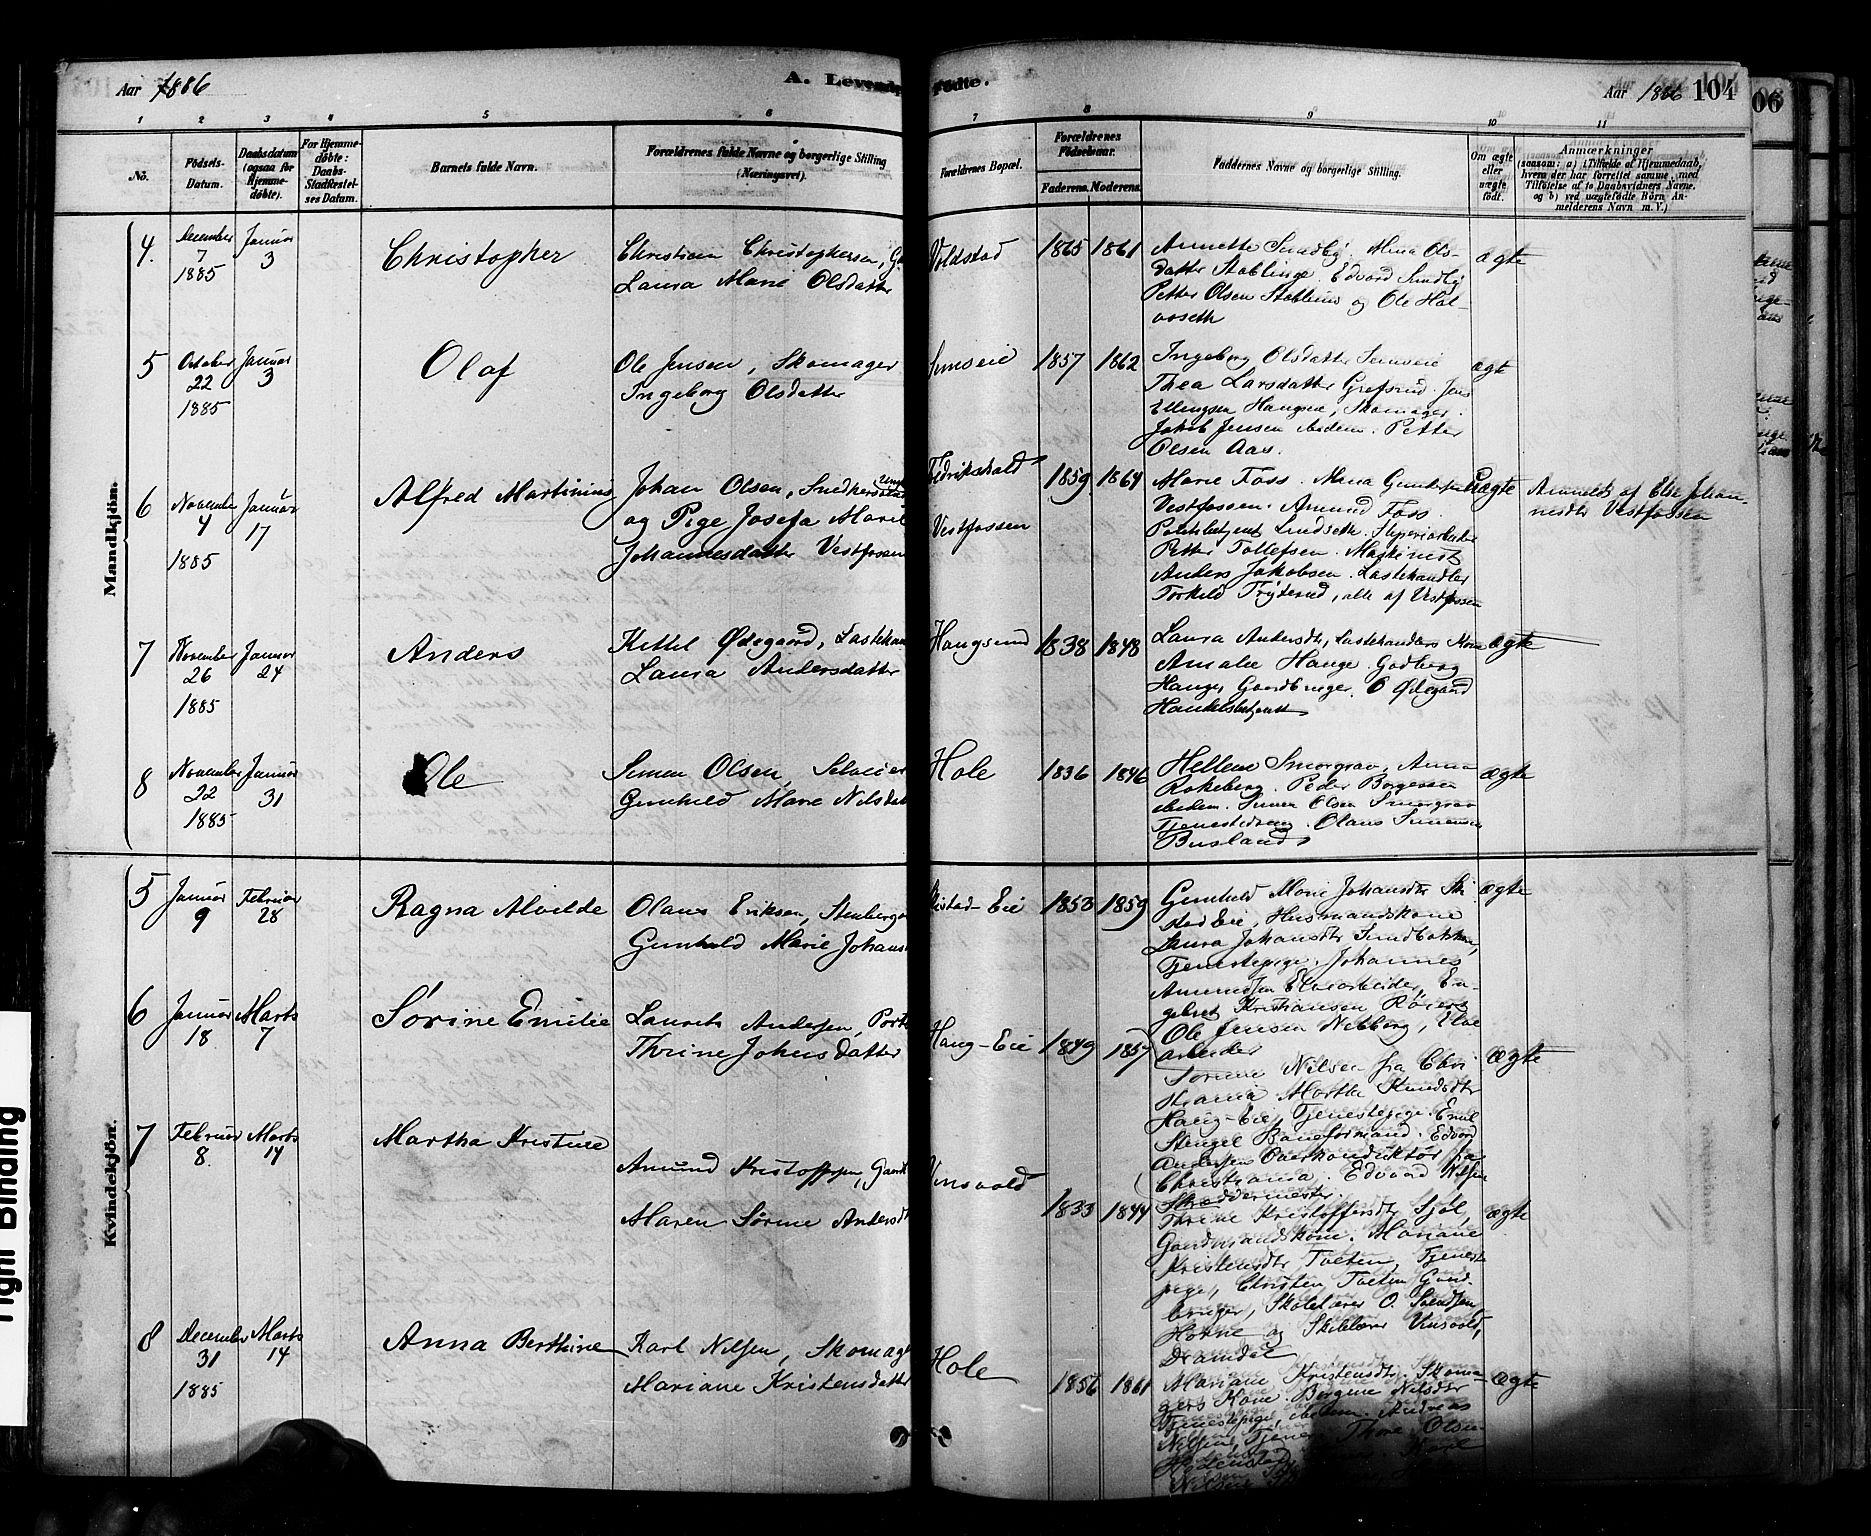 Aar 1886
A. Levende
fødte.
Aar 1886 104
06
1 2 3 4 5 6 7 8 9 10 11
No.
Fødsels-
Datum.
Daabsdatum
(ogsaa for
Hjemme-
døbte).
For Hjemme-
døbte:
Daabs-
Stadfæstel-
ses Datum.
Barnets fulde Navn.
Forældrenes fulde Navne og borgerlige Stilling
(Næringsvei).
Forældrenes Bopæl.
Forældrenes
Fødselsaar.
Faderens. Moderens.
Faddernes Navne og borgerlige Stilling.
Om ægte
eller
uægte
født.
Anmærkninger
(saasom: a) i Tilfælde af Hjemmedaab,
hvem der har forrettet samme, med
Tilføielse af to Daabsvidners Navne.
og b) ved uægtefødte Børn An-
melderens Navn m. V.)
Mandkjön.
4. December 7 1885 Januar 3 Christopher
Christian Christophersen,
Laura Marie Olsdatter
Voldstad 1865 1861
Annette Sundby. Mina Ols-
datter Stablinge Edvard Sundby
Petter Olsen Stablins og Ole Hol-
voseth
ægte
5 October 22 1885 Januar 3 Olaf
Ole Jensen, Skomager
Ingeborg Olsdatter
1857 1862
Ingeborg Olsdatter
Thea Larsdatter Grefsrud. Jens
Ellingsen Haugsrn, Skomager.
Jakob Jensen ibidem. Petter
Olsen Aas.
ægte
6 November 4 1885 Januar 17 Alfred Martinius
Johan Olsen, Snedkersvend
og Pige Josefa Marie
Johannesdatter Vestfossen
Fredrikshald
Vestfossen
1859 1864
Marie Foss. Mina
Vestfossen. Amund Foss.
Lindseth.
Petter Tollefsen. Maskinist
Anders Jakobsen. Lastehandler
Torkild Fryterud, alle af Vestfossen
Uægte
Anmeldt af Else Johan-
nesdtr Vestfossen
7 November 26 1885 Januar 24 Anders
Kittel Ødegaard, Lastehan
Laura Andersdatter
Haugsund 1838 1848
Laura Andersdtr, Lastehandlers Kone
Amalie Hauge. Gudberg
Hauge, Gaardbruger. O Ødegaard
Handelsbetjent
ægte
8 November 22 1885 Januar 31 Ole
Simen Olsen, Selveier
Gunhild Marie Nilsdat
Hole 1836 1846
Hellene Smorgrav, Anna
Rokeberg. Peder Borgersen
ibidem. Simen Olsen Smorgrav
Tjenestedreng. Olaus Simensen
Busland
ægte
Kvindekjön.
5 Januar 9 Februar 28 Ragna Alvilde
Olaus Eriksen, Stenberga
Gunhild Marie Johans
Skistad-Eie 1853 1859
Gunhild Marie Johansdtr Ski
stad Eie, Husmandskone
Laura Johansdtr Sundbakken,
Tjenestepige. Johannes
Amundsen Elvearbeider, En-
gebret Kristiansen
Ole Jensen Nebberg, Elve
arbeider
ægte
6 Januar 18 Marts 7 Sørine Emilie
Laurits Andersen, Port
Thrine Johnsdatter
Haug-Eie 1849 1857
Sørine Nilsen fra Chri
stiania Marthe Knudsdtr
Haug-Eie, Tjenestepige. Emil
Stengel Baneformand. Edvard
Andersen Overkonduktør fra
Christiania. Edvard Nilsen
Skreddermester.
ægte
7 Februar 8. Marts 14 Martha Kristine
Amund Kristoffersen, Gaardb
Maren Sørine Andersdt
1833 1844
Thrine Kristoffersdtr Sjøl,
Gaardmandskone. Mariane
Kristensdtr Tveten, Tjeneste
pige, Christen Tveten Gaard-
bruger, Skolelærer O. Svendsen,
Horne og Skolelærer
Dramdal
ægte
8 December 31 1885 Marts 14 Anna Berthine
Karl Nilsen, Skomag
Mariane Kristensdatter
Hole 1856 1861
Mariane Kristensdtr Skoma
gers Kone. Borgine Nilsdtr
Tjenestepige, ibidem. Andreas
Nilsen, Thore Olsen
ægte
Tight Binding